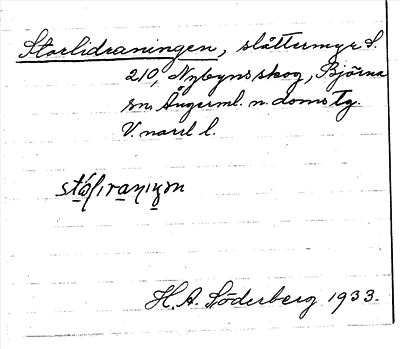 Storlidraningen, slåttermyr S.
210, Nybyns skog, Björna
sn. Ångerml. n. doms tg.
V. narrl l.
H. A. Söderberg 1933.